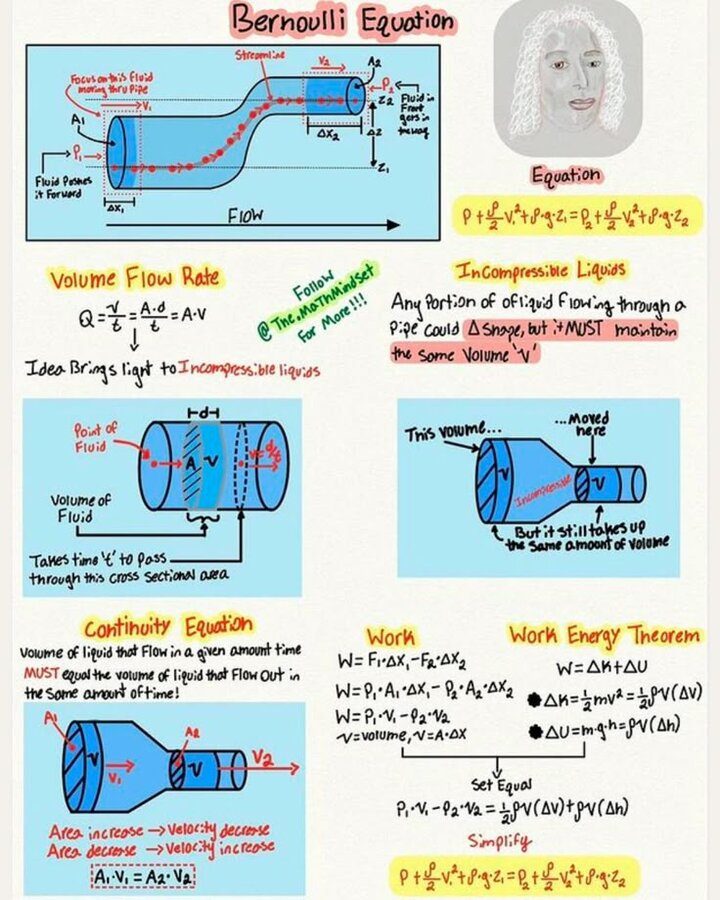 Bernoulli Equation
Streamline
Focus on this Fluid
moving thru Pipe
V₁
V₂
A₂
A₁
P₁
P₂
Z₂
Fluid in
Front
gets in
the way
ΔX₂
ΔZ
Z₁
Fluid Pushes
it Forward
ΔX₁
FLOW
Equation
P+ρ/2 V₁²+ρ·g·Z₁=P₂+ρ/2 V₂²+ρ·g·Z₂
Volume Flow Rate
Q=V/t=A·d/t=A·V
Idea Brings light to Incompressible liquids
Follow
@The.MaThMindset
For More!!!
Incompressible Liquids
Any Portion of of liquid flowing through a
Pipe could Δ shape, but it MUST maintain
the same Volume 'V'
d
Point of
Fluid
A
V
V=d/t
Volume of
Fluid
Takes time 't' to pass
through this cross sectional area
This volume...
...Moved
here
V
Incompressible
V
But it still takes up
the same amount of volume
Continuity Equation
Volume of liquid that Flow in a given amount time
MUST equal the volume of liquid that Flow Out in
the Same amount of time!
A₁
A₂
V
V₁
V
V₂
Area increase → Velocity decrease
Area decrease → Velocity increase
A₁·V₁=A₂·V₂
Work
W=F₁·ΔX₁-F₂·ΔX₂
W=P₁·A₁·ΔX₁-P₂·A₂·ΔX₂
W=P₁·V₁-P₂·V₂
V=volume, V=A·ΔX
Work Energy Theorem
W=ΔK+ΔU
ΔK=½mv²=½ρV(ΔV)
ΔU=m·g·h=ρV(Δh)
Set Equal
P₁·V₁-P₂·V₂=½ρV(ΔV)+ρV(Δh)
Simplify
P+ρ/2 V₁²+ρ·g·Z₁=P₂+ρ/2 V₂²+ρ·g·Z₂